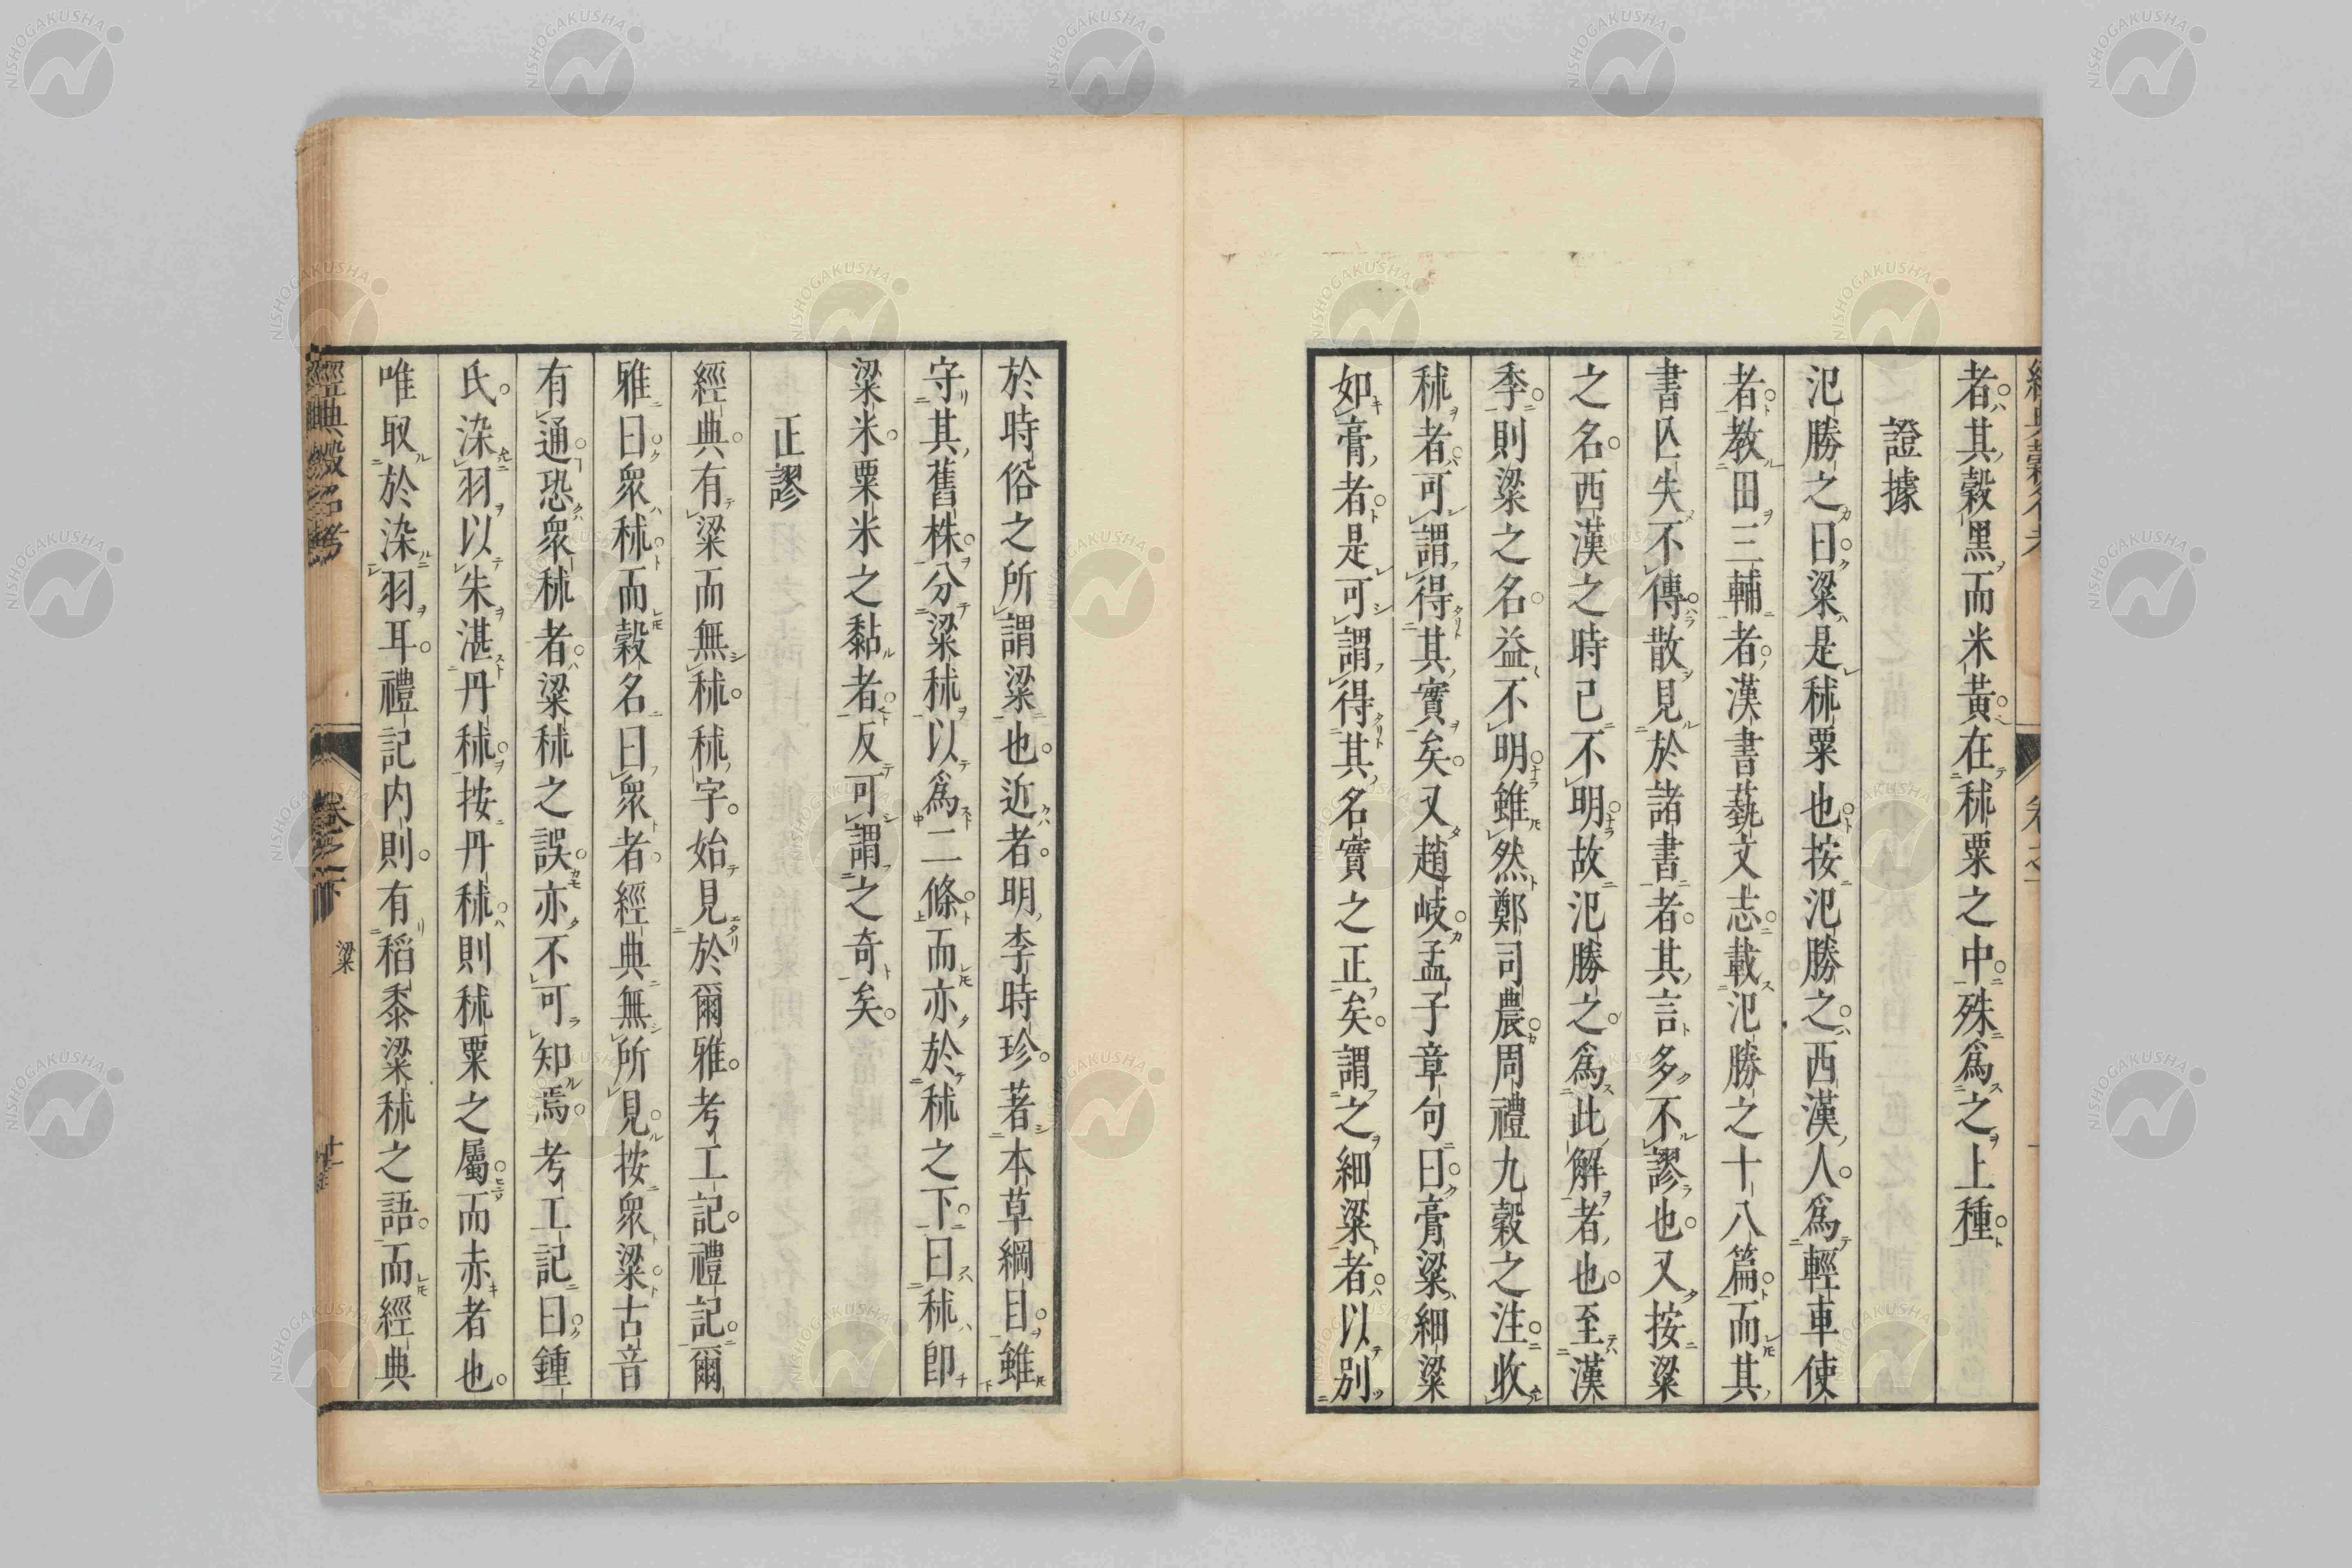 者其穀黑而米黃在秫粟之中殊爲之上種
證據
氾勝之曰粱是秫粟也按氾勝之西漢人爲輕車使
者教田三輔者漢書藝文志載氾勝之十八篇而其
書亾失不傳散見於諸書者其言多不謬也又按粱
之名西漢之時已不明故氾勝之爲此解者也至漢
季則粱之名益不明雖然鄭司農周禮九穀之注收
秫者可謂得其實矣又趙岐孟子章句曰膏粱細粱
如膏者是可謂得其名實之正矣謂之細粱者以別
於時俗之所謂粱也近者明李時珍著本草綱目雖
守其舊株分粱秫以爲二條而亦於秫之下曰秫卽
粱米粟米之黏者反可謂之奇矣
正謬
經典有粱而無秫秫字始見於爾雅考工記禮記爾
雅曰衆秫而穀名曰衆者經典無所見按衆粱古音
有通恐衆秫者粱秫之誤亦不可知焉考工記曰鍾
氏染羽以朱湛丹秫按丹秫則秫粟之屬而赤者也
唯取於染羽耳禮記内則有稻黍粱秫之語而經典
經典穀名考 卷之下 粱 十一
NISHOGAKUSHA